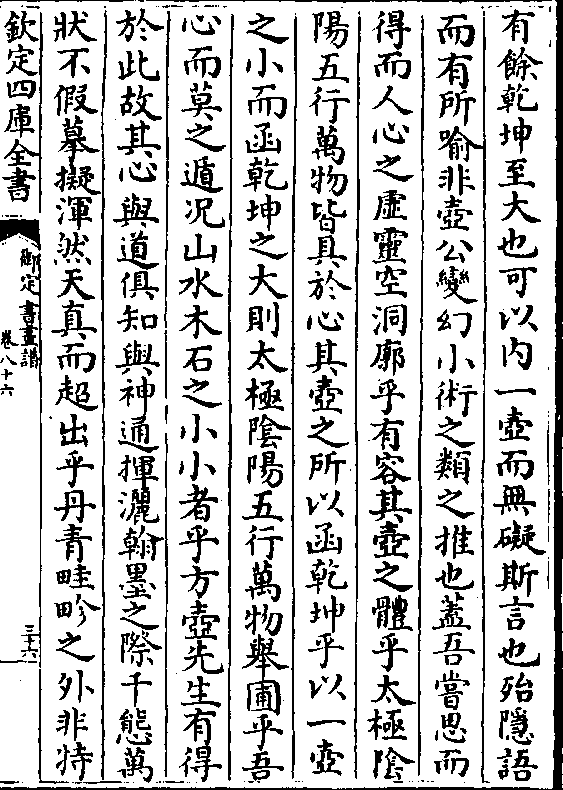 有餘乾坤至大也可以内一壺而無礙斯言也殆隱語
而有所喻非壺公變幻小術之類之推也蓋吾嘗思而
得而人心之虚靈空洞廓乎有容其壺之體乎太極陰
陽五行萬物皆具於心其壺之所以函乾坤乎以一壺
之小而函乾坤之大則太極陰陽五行萬物舉囿乎吾
心而莫之遁况山水木石之小小者乎方壺先生有得
於此故其心與道俱知與神通揮灑翰墨之際千態萬
狀不假摹擬渾然天真而超出乎丹青畦畛之外非特
欽定四庫全書
御定書畫譜
卷八十六
三十六